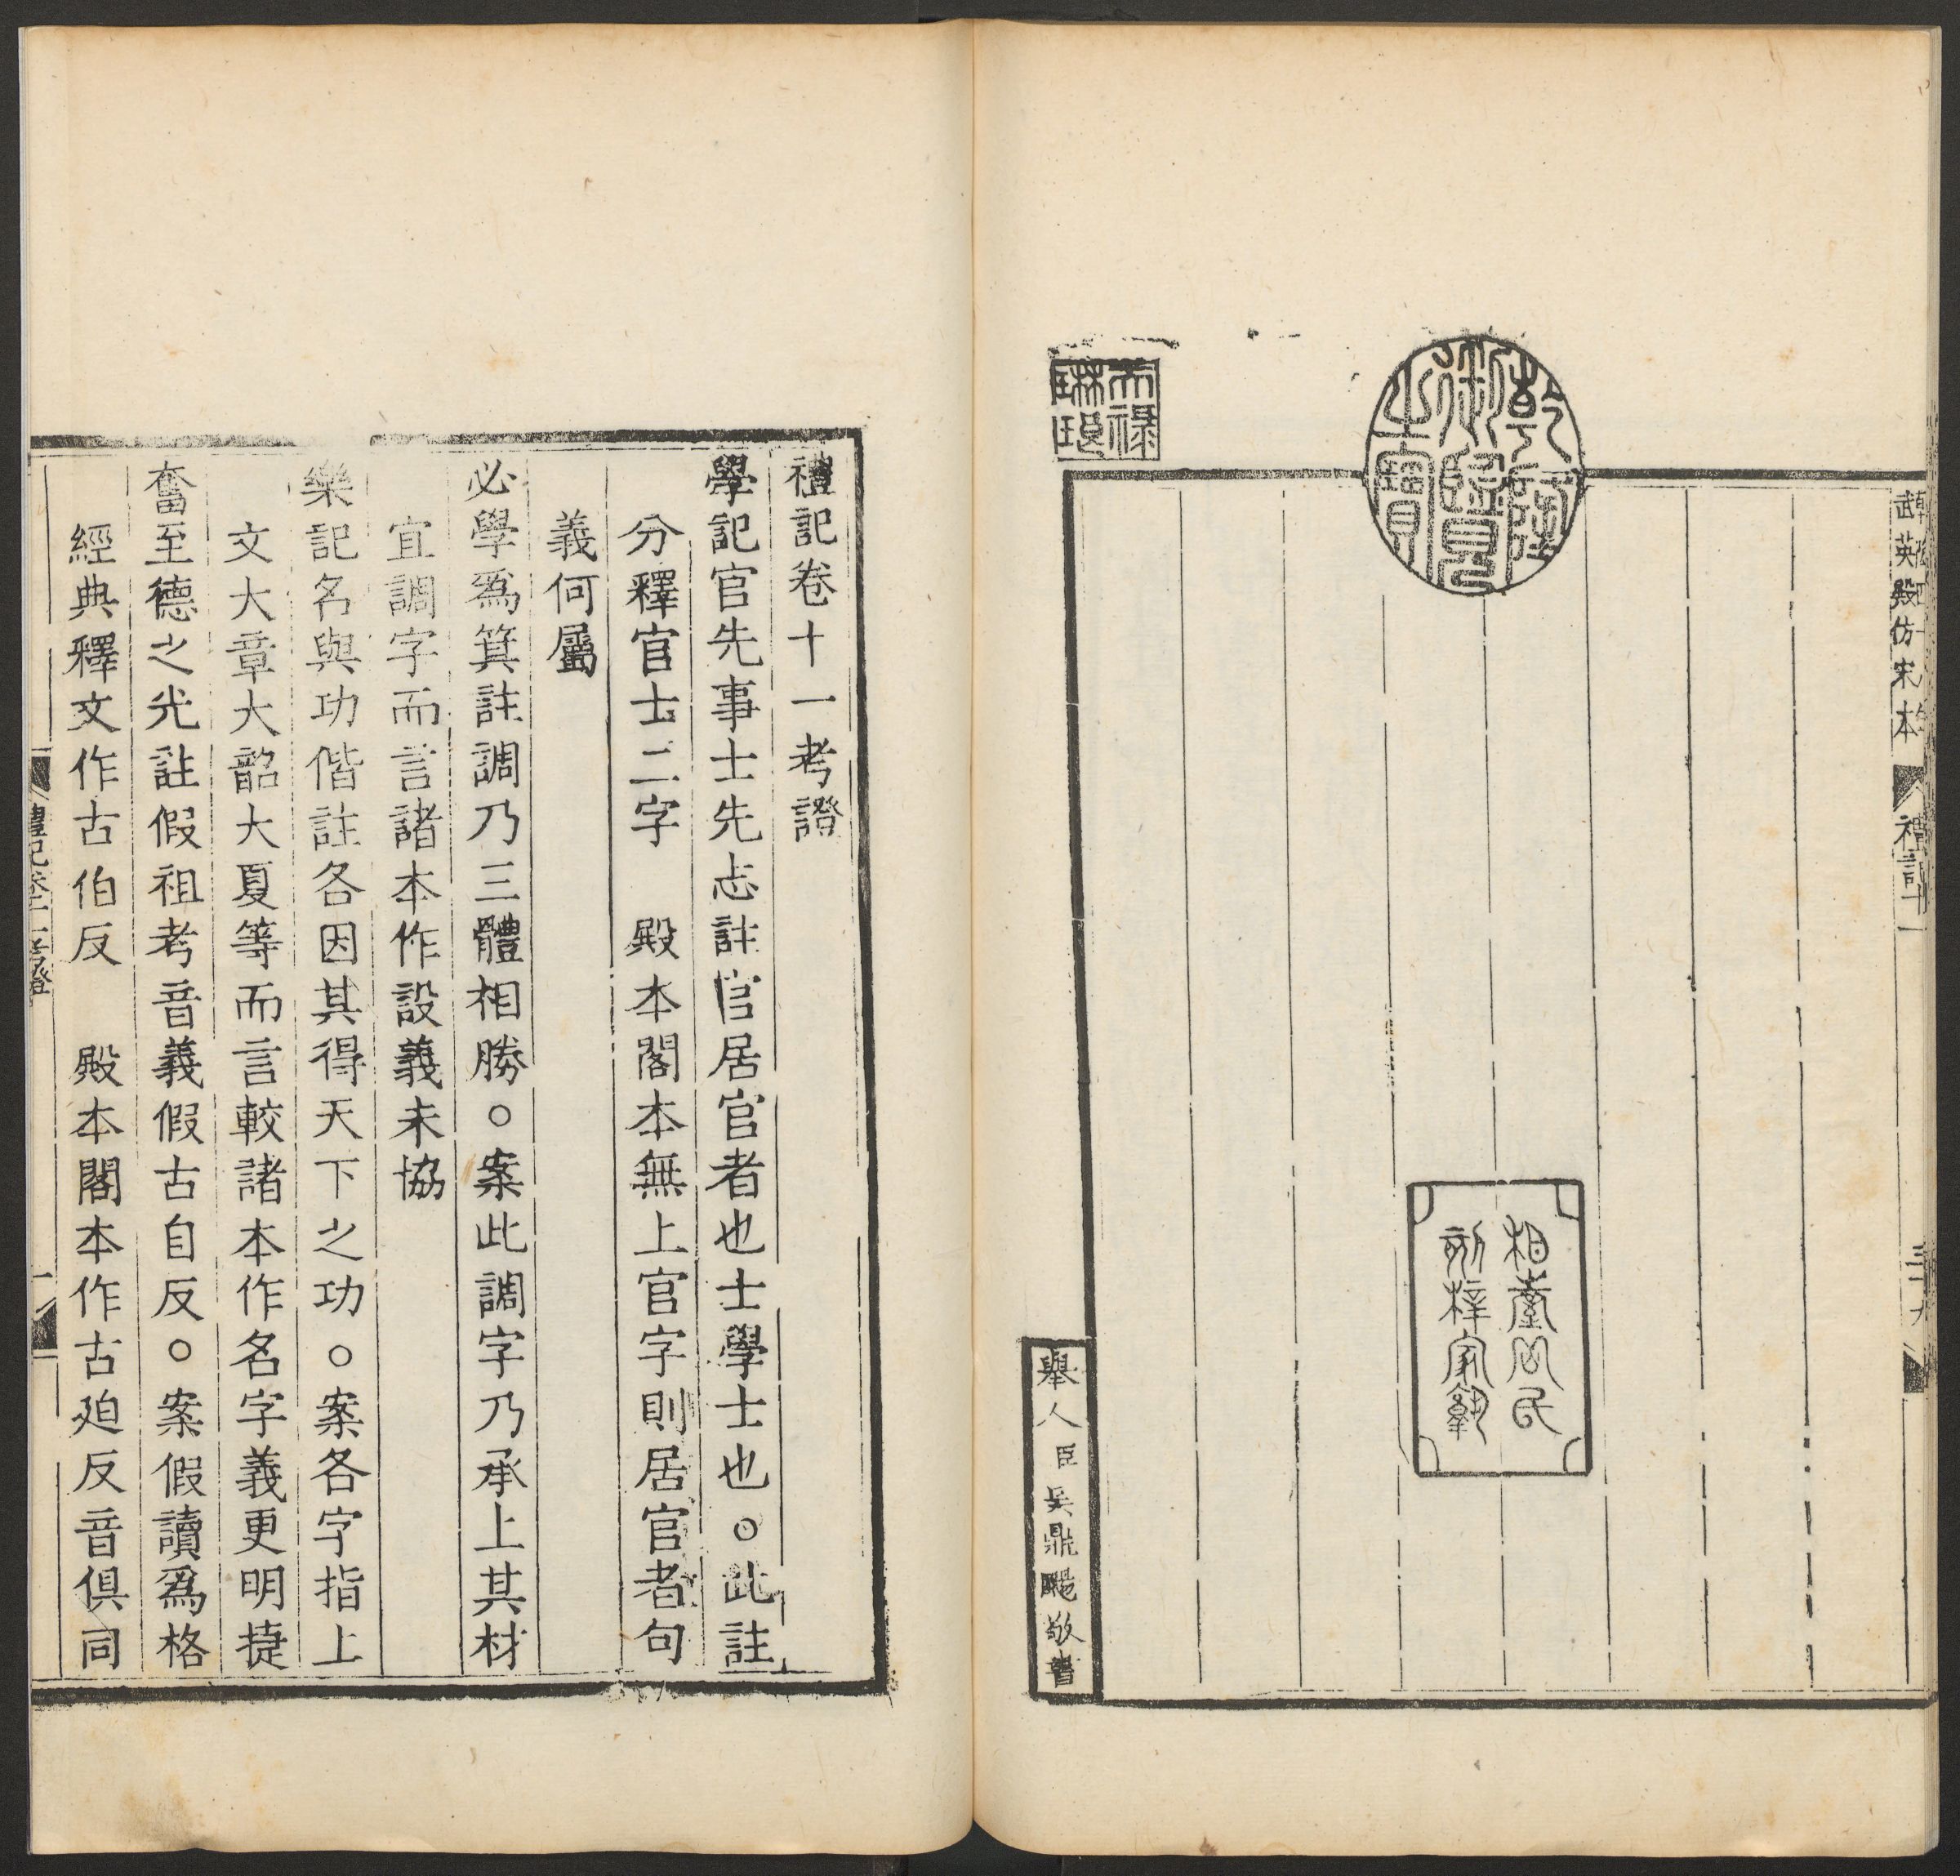 武英殿仿宋本
禮記十一
三十九
乾隆
御覽
之寶
天祿
琳琅
相臺岳氏
刻梓家塾
舉人臣吳鼎颺敬書
禮記卷十一考證
學記官先事士先志註官居官者也士學士也○此註
分釋官士二字 殿本閣本無上官字則居官者句
義何屬
必學爲箕註調乃三體相勝○案此調字乃承上其材
宜調字而言諸本作設義未協
樂記名與功偕註各因其得天下之功○案各字指上
文大章大韶大夏等而言較諸本作名字義更明捷
奮至德之光註假祖考音義假古自反○案假讀爲格
經典釋文作古伯反 殿本閣本作古廹反音俱同
禮記卷十一考證
一